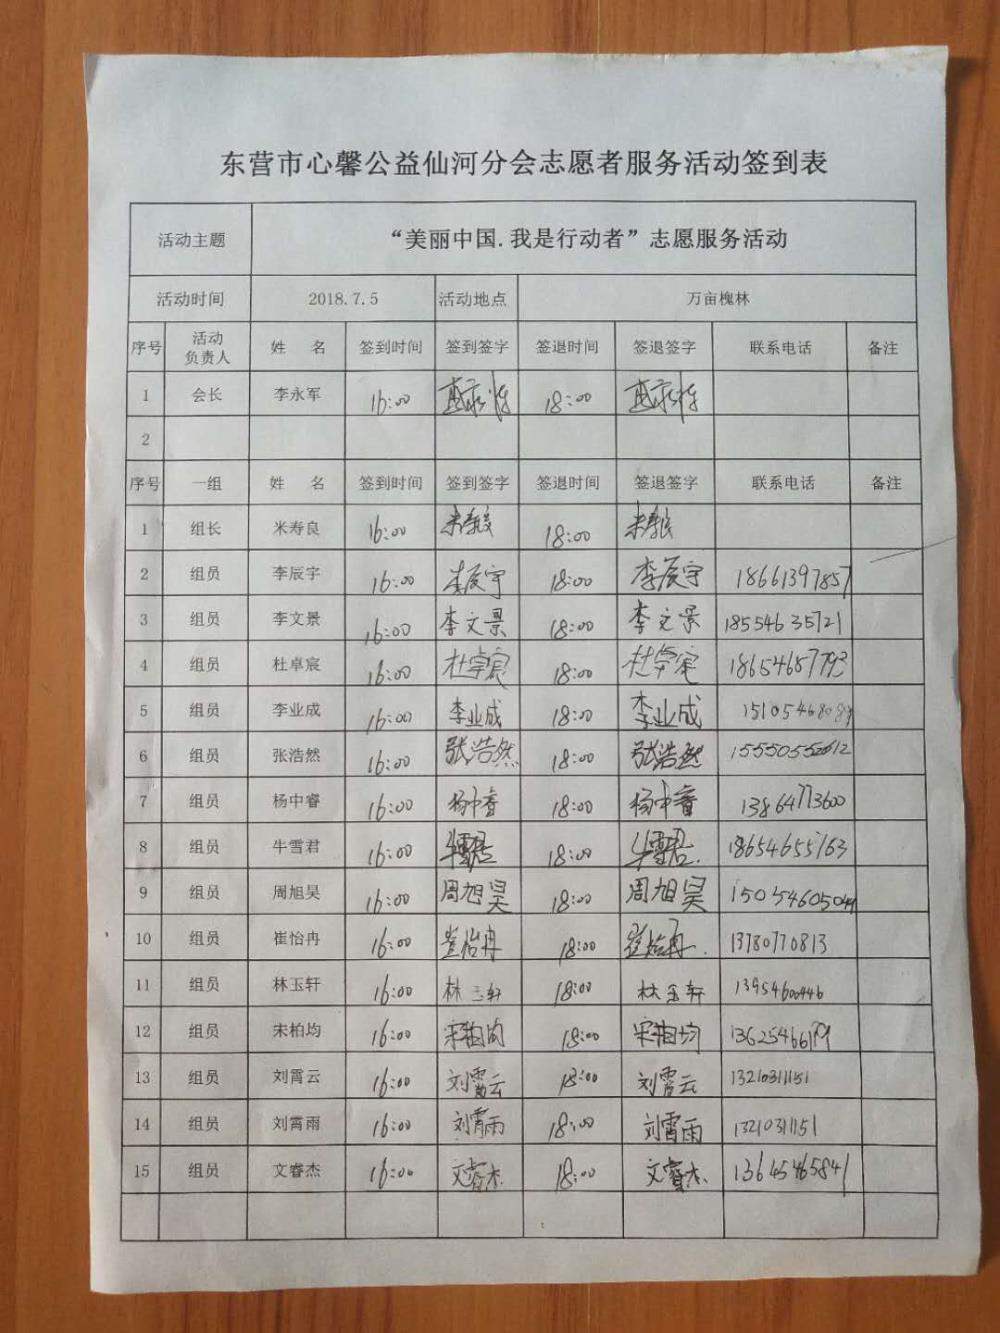 东营市心馨公益仙河分会志愿者服务活动签到表
活动主题 “美丽中国.我是行动者”志愿服务活动
活动时间 2018.7.5 活动地点 万亩槐林
序号 活动负责人 姓 名 签到时间 签到签字 签退时间 签退签字 联系电话 备注
1 会长 李永军 16:00 18:00
2
序号 一组 姓 名 签到时间 签到签字 签退时间 签退签字 联系电话 备注
1 组长 米寿良 16:00 米寿良 18:00 米寿良
2 组员 李辰宇 16:00 李辰宇 18:00 李辰宇 18661397857
3 组员 李文景 16:00 李文景 18:00 李文景 18554635721
4 组员 杜卓宸 16:00 杜卓宸 18:00 杜卓宸 18654687793
5 组员 李业成 16:00 李业成 18:00 李业成
6 组员 张浩然 16:00 张浩然 18:00 张浩然
7 组员 杨中睿 16:00 杨中睿 18:00 杨中睿 13864773600
8 组员 牛雪君 16:00 牛雪君 18:00 牛雪君. 18654655763
9 组员 周旭昊 16:00 周旭昊 18:00 周旭昊
10 组员 崔怡冉 16:00 崔怡冉 18:00 崔怡冉. 13780770813
11 组员 林玉轩 16:00 林玉轩 18:00 林玉轩 13954600446
12 组员 宋柏均 16:00 宋柏均 18:00 宋柏均
13 组员 刘霄云 16:00 刘霄云 18:00 刘霄云 13210311151
14 组员 刘霄雨 16:00 刘霄雨 18:00 刘霄雨 13210311151
15 组员 文睿杰 16:00 文睿杰. 18:00 文睿杰. 13645465841